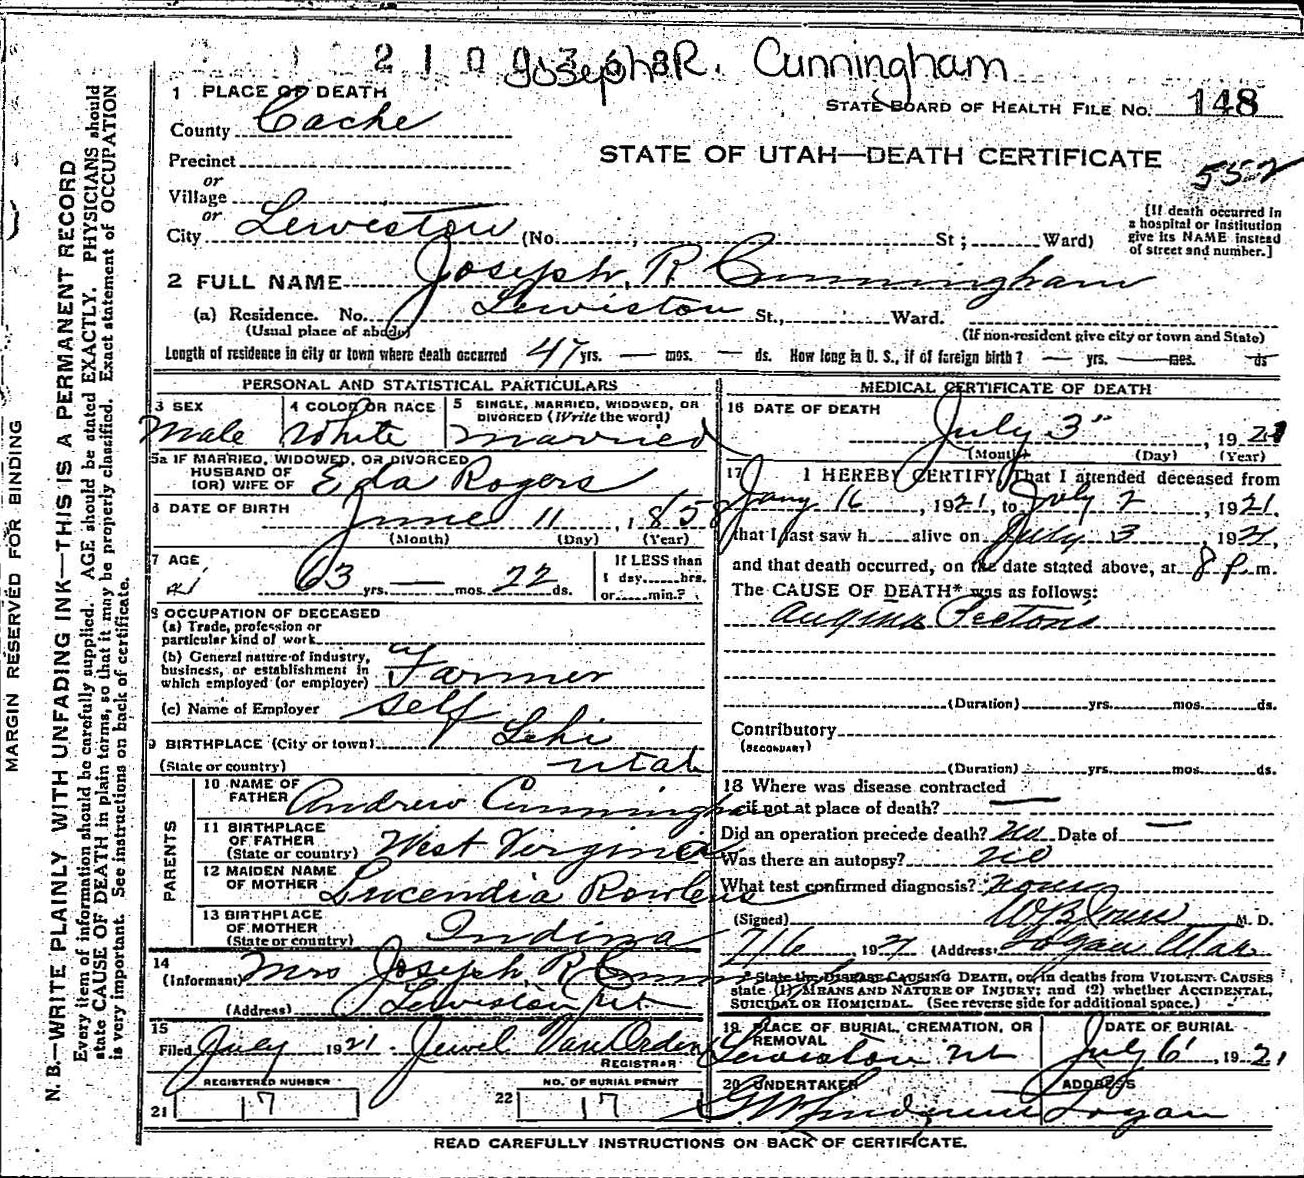 Joseph R. Cunningham
1 PLACE OF DEATH
STATE BOARD OF HEALTH FILE No. 148
County Cache
STATE OF UTAH—DEATH CERTIFICATE
552
Precinct
or
Village
or
City Lewiston (No. , St ; Ward)
[If death occurred in
a hospital or institution
give its NAME instead
of street and number.]
2 FULL NAME Joseph R Cunningham
(a) Residence. No. Lewiston St., Ward.
(Usual place of abode) (If non-resident give city or town and State)
Length of residence in city or town where death occurred 47 yrs. — mos. — ds. How long in U. S., if of foreign birth? — yrs. — mos. ds
PERSONAL AND STATISTICAL PARTICULARS
3 SEX Male
4 COLOR OR RACE White
5 SINGLE, MARRIED, WIDOWED, OR
DIVORCED (Write the word)
married
5a IF MARRIED, WIDOWED, OR DIVORCED
HUSBAND OF
(OR) WIFE OF Eda Rogers
6 DATE OF BIRTH June 11, 1858
(Month) (Day) (Year)
7 AGE 63 yrs. — mos. 22 ds.
If LESS than
1 day......hrs.
or......min.?
8 OCCUPATION OF DECEASED
(a) Trade, profession or
particular kind of work
(b) General nature of industry,
business, or establishment in
which employed (or employer) Farmer
(c) Name of Employer self
9 BIRTHPLACE (City or town) Lehi
(State or country) Utah
PARENTS
10 NAME OF
FATHER Andrew Cunningham
11 BIRTHPLACE
OF FATHER
(State or country) West Virginia
12 MAIDEN NAME
OF MOTHER Lucendia Rawlens
13 BIRTHPLACE
OF MOTHER
(State or country) Indina
14
(Informant) Mrs Joseph R Cunningham
(Address) Lewiston Ut
15
Filed July 1921. Jewel Van Orden
REGISTRAR
REGISTERED NUMBER
21 17
NO. OF BURIAL PERMIT
22 17
MEDICAL CERTIFICATE OF DEATH
16 DATE OF DEATH
July 3", 1921
(Month) (Day) (Year)
17 I HEREBY CERTIFY, That I attended deceased from
Jany 16, 1921, to July 2, 1921.
that I last saw h...... alive on July 3, 1921,
and that death occurred, on the date stated above, at 8 p. m.
The CAUSE OF DEATH* was as follows:
Angina Pectoris
(Duration) yrs. mos. ds.
Contributory
(SECONDARY)
(Duration) yrs. mos. ds.
18 Where was disease contracted
if not at place of death? —
Did an operation precede death? no Date of —
Was there an autopsy? no
What test confirmed diagnosis?
(Signed) M. D.
7/6 1921 (Address) Logan Utah
* State the DISEASE CAUSING DEATH, or, in deaths from VIOLENT CAUSES
state (1) MEANS AND NATURE OF INJURY; and (2) whether ACCIDENTAL,
SUICIDAL OR HOMICIDAL. (See reverse side for additional space.)
19 PLACE OF BURIAL, CREMATION, OR
REMOVAL
Lewiston Ut
DATE OF BURIAL
July 6, 1921
20 UNDERTAKER
ADDRESS
Logan
READ CAREFULLY INSTRUCTIONS ON BACK OF CERTIFICATE.
MARGIN RESERVED FOR BINDING
N. B.—WRITE PLAINLY WITH UNFADING INK—THIS IS A PERMANENT RECORD
Every item of information should be carefully supplied. AGE should be stated EXACTLY. PHYSICIANS should
state CAUSE OF DEATH in plain terms, so that it may be properly classified. Exact statement of OCCUPATION
is very important. See instructions on back of certificate.